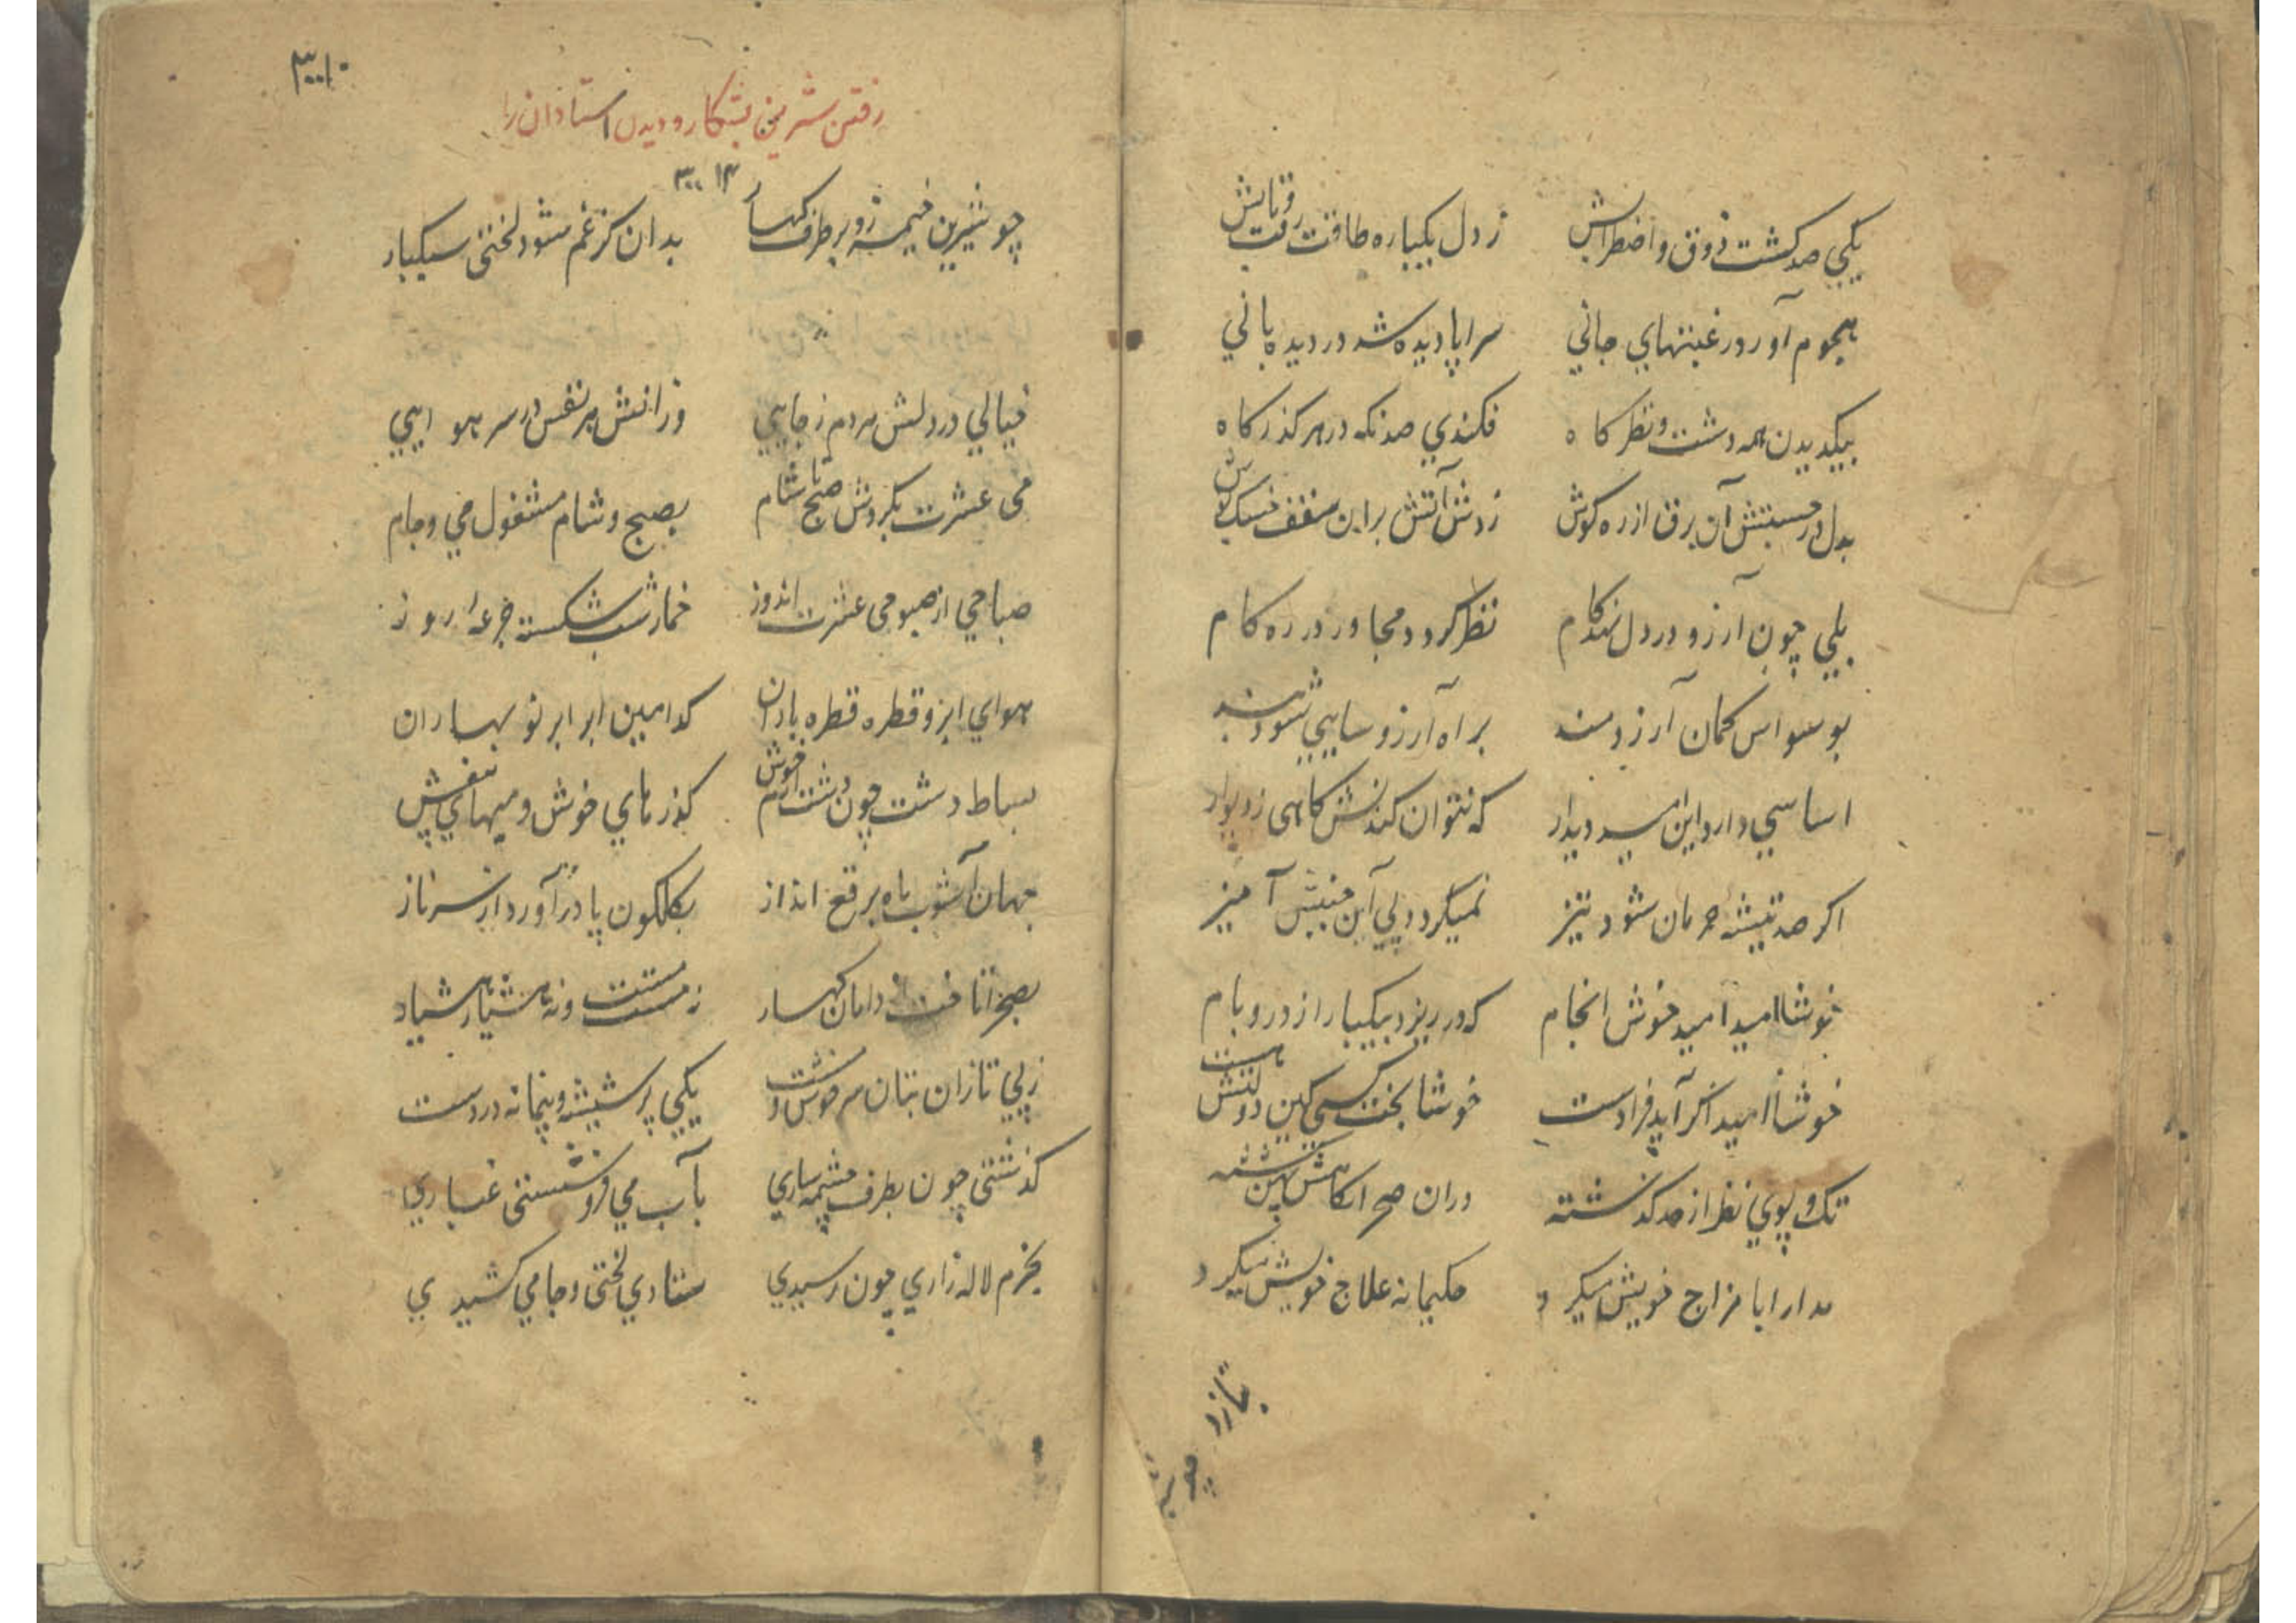 یکي صد کشت ذوق و اضطرابش زدل یکباره طاقت رفت و تابش
هجوم آورد رغبتهاي جاني سراپا دیده شد در دیده باني
بیکدیدن همه دشت و نظرکاه فکندي صد نکه در هر کذرکاه
بدل در جستنش آن برق از ره کوش زدش آتش براین سقف خسک پوش
بلي چون آرزو در دل نهد کام نظر کردد مجاور در ره کام
بوسواس کمان آرزومند براه آرزو سایي شود بند
اساسي دارد این امید دیدار که نتوان کندنش کاهی ز دیوار
اکر صد تیشه حرمان شود تیز نمیکردد پي آن جنبش آمیز
خوشا امید امید خوش انجام که در ریزد بیکبار از در و بام
خوشا امید اکر آید فرادست خوشا بخت کسي کین دولتش هست
تک و پوي نظر از حد کذشته دران صحرا نکاهش پهن کشته
مدارا با مزاج خویش میکرد حکیمانه علاج خویش میکرد
۳۰۱۰
رفتن شیرین بشکار و دیدن استادان را
۳۰۰ ۱۴
چو شیرین خیمه زد بر طرف کهسار بدان کز غم شود لختی سبکبار
خیالي در دلش هر دم ز جایي وز انش هر نفس در سر هوایي
می عشرت بکردش صبح تا شام بصبح و شام مشغول مي و جام
صباحي از صبوحی عشرت اندوز خمار شب شکسته جرعهٔ روز
هواي ابر و قطره قطره باران کدامین ابر ابر نو بهاران
بساط دشت چون دشت ارم خوش کذرهاي خوش و میهاي بیغش
جهان آشوب ماه برقع انداز بکلکون پا درآورد از سر ناز
بصحرا تافت از دامان کهسار نه مست مست و نه هشیار هشیار
ز پي تازان بتان سرخوش و مست یکي پر شیشه و پیمانه در دست
کذشتی چون بطرف چشمه ساري بآب مي فرو شستی غباري
بخرم لاله زاري چون رسیدي ستادي لختی و جامي کشیدي